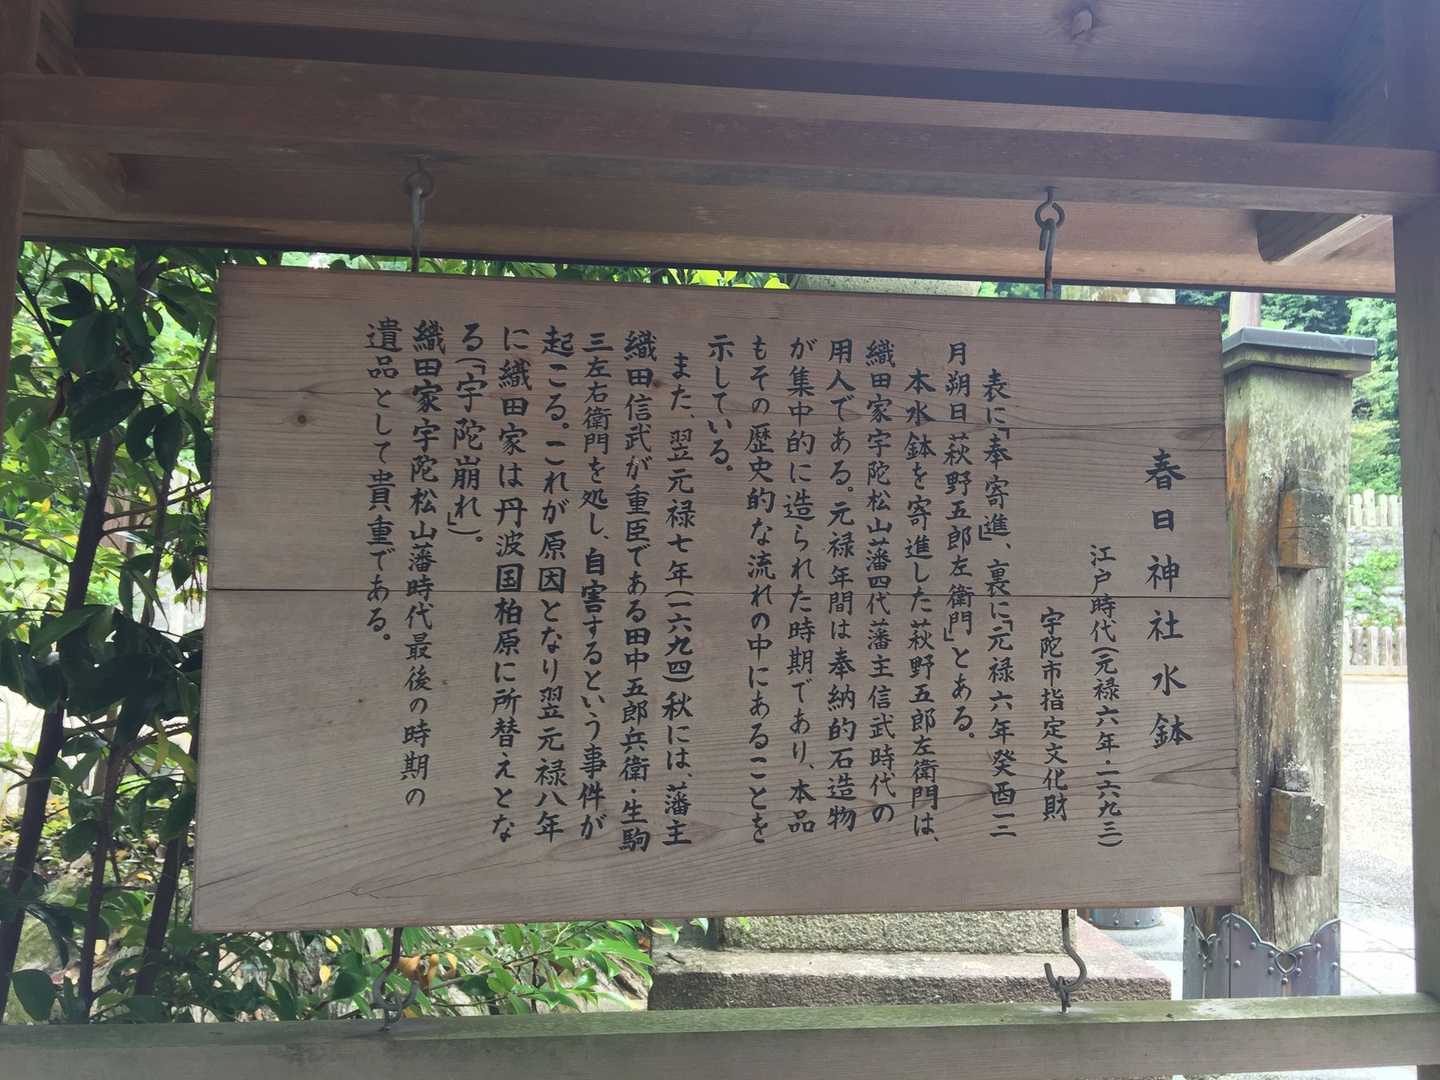 春日神社水鉢
江戸時代(元禄六年・一六九三)
宇陀市指定文化財
表に「奉寄進」、裏に「元禄六年癸酉二
月朔日 萩野五郎左衛門」とある。
本水鉢を寄進した萩野五郎左衛門は、
織田家宇陀松山藩四代藩主信武時代の
用人である。元禄年間は奉納的石造物
が集中的に造られた時期であり、本品
もその歴史的な流れの中にあることを
示している。
また、翌元禄七年(一六九四)秋には、藩主
織田信武が重臣である田中五郎兵衛・生駒
三左右衛門を処し、自害するという事件が
起こる。これが原因となり翌元禄八年
に織田家は丹波国柏原に所替えとな
る(「宇陀崩れ」)。
織田家宇陀松山藩時代最後の時期の
遺品として貴重である。